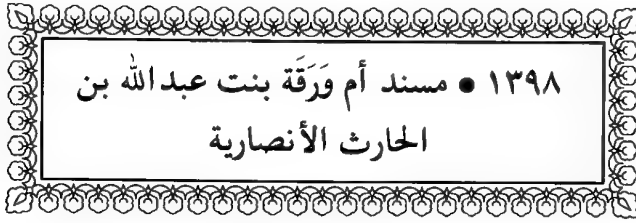 ١٣٩٨ • مسند أم وَرَقَة بنت عبد الله بن
الحارث الأنصارية